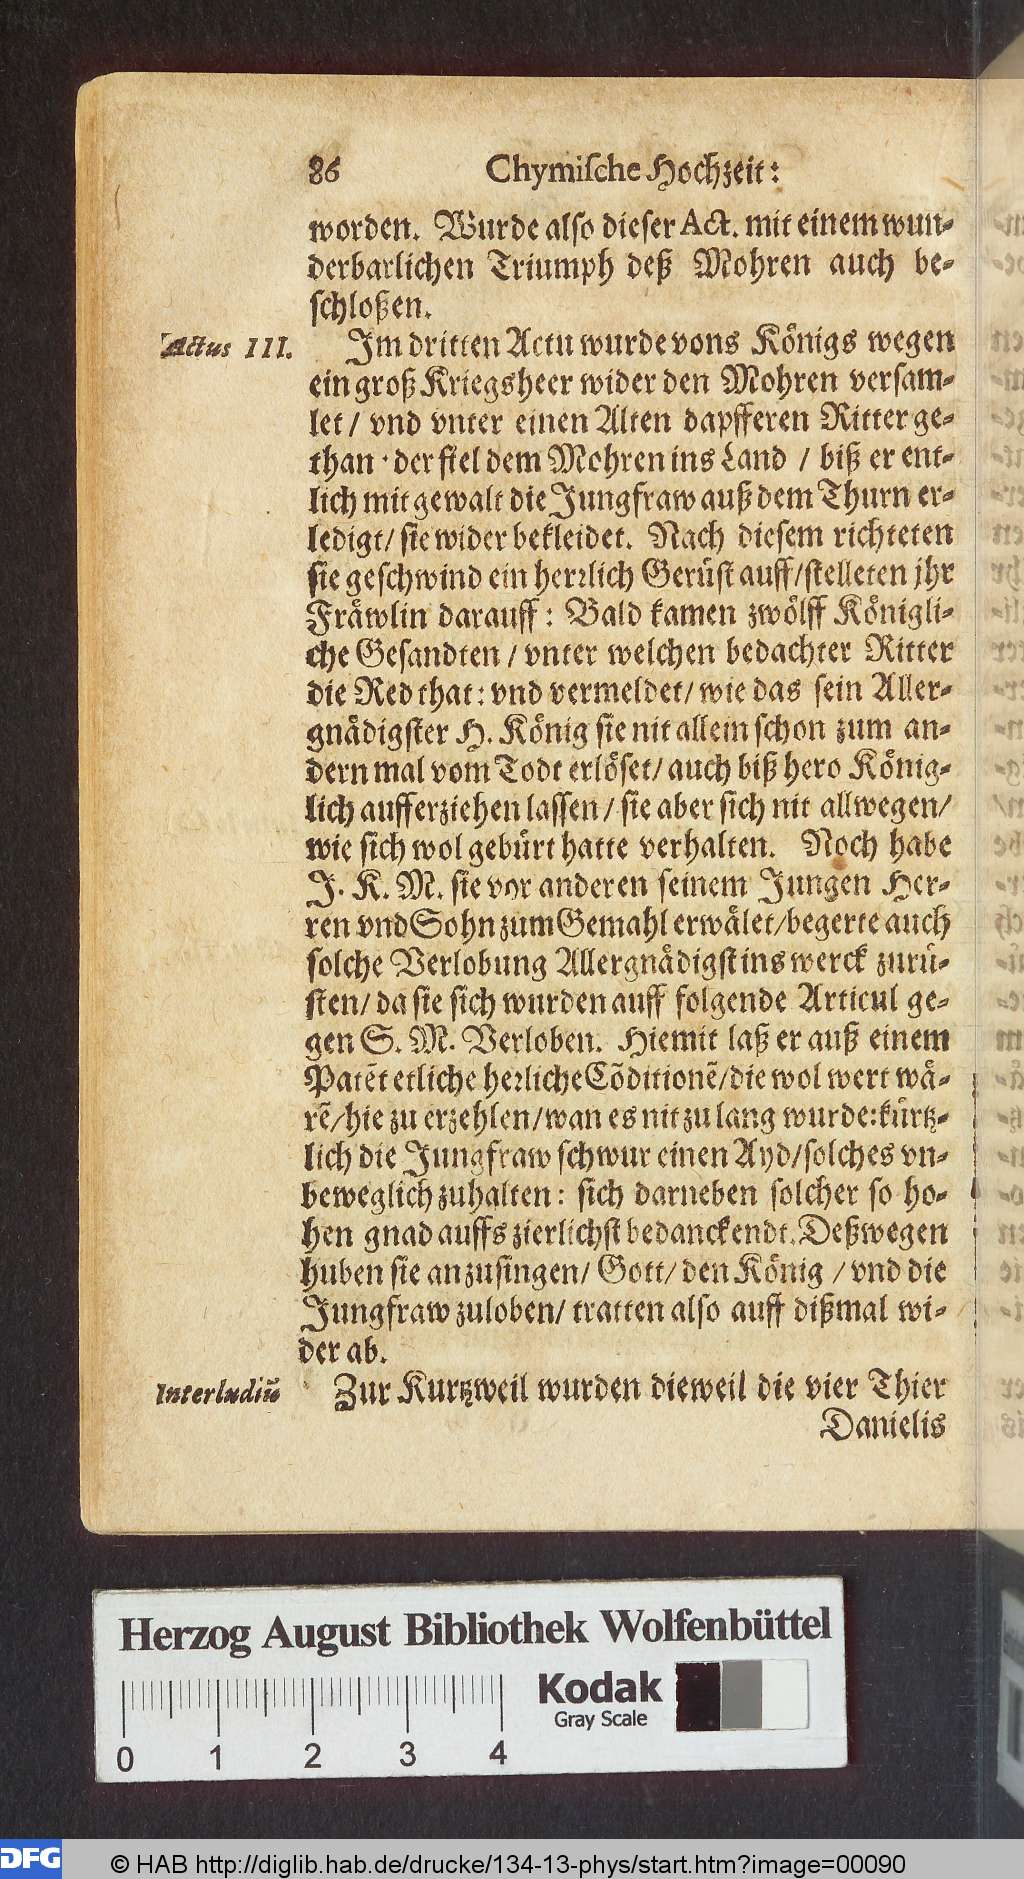 86 Chymische Hochzeit:
worden. Wurde also dieser Act. mit einem wun-
derbarlichen Triumph deß Mohren auch be-
schloßen.
Actus III. Im dritten Actu wurde vons Königs wegen
ein groß Kriegsheer wider den Mohren versam-
let / vnd vnter einen Alten dapfferen Ritter ge-
than · der fiel dem Mohren ins Land / biß er ent-
lich mit gewalt die Jungfraw auß dem Thurn er-
ledigt/ sie wider bekleidet. Nach diesem richteten
sie geschwind ein herꝛlich Gerüst auff/stelleten jhr
Fräwlin darauff: Bald kamen zwölff Königli-
che Gesandten / vnter welchen bedachter Ritter
die Red that: vnd vermeldet/ wie das sein Aller-
gnädigster H. König sie nit allein schon zum an-
dern mal vom Todt erlöset/ auch biß hero König-
lich aufferziehen lassen / sie aber sich nit allwegen/
wie sich wol gebürt hatte verhalten. Noch habe
J. K. M. sie vor anderen seinem Jungen Her-
ren vnd Sohn zum Gemahl erwälet/begerte auch
solche Verlobung Allergnädigst ins werck zurü-
sten/ da sie sich wurden auff folgende Articul ge-
gen S. M. Verloben. Hiemit laß er auß einem
Patēt etliche heꝛliche Cōditionē/die wol wert wä-
rē/hie zu erzehlen/wan es nit zu lang wurde: kürtz-
lich die Jungfraw schwur einen Ayd/solches vn-
beweglich zuhalten: sich darneben solcher so ho-
hen gnad auffs zierlichst bedanckendt. Deßwegen
huben sie an zusingen/ Gott/ den König / vnd die
Jungfraw zuloben/ tratten also auff dißmal wi-
der ab.
Interludiū Zur Kurtzweil wurden dieweil die vier Thier
Danielis
Herzog August Bibliothek Wolfenbüttel
Kodak
Gray Scale
0 1 2 3 4
DFG © HAB http://diglib.hab.de/drucke/134-13-phys/start.htm?image=00090